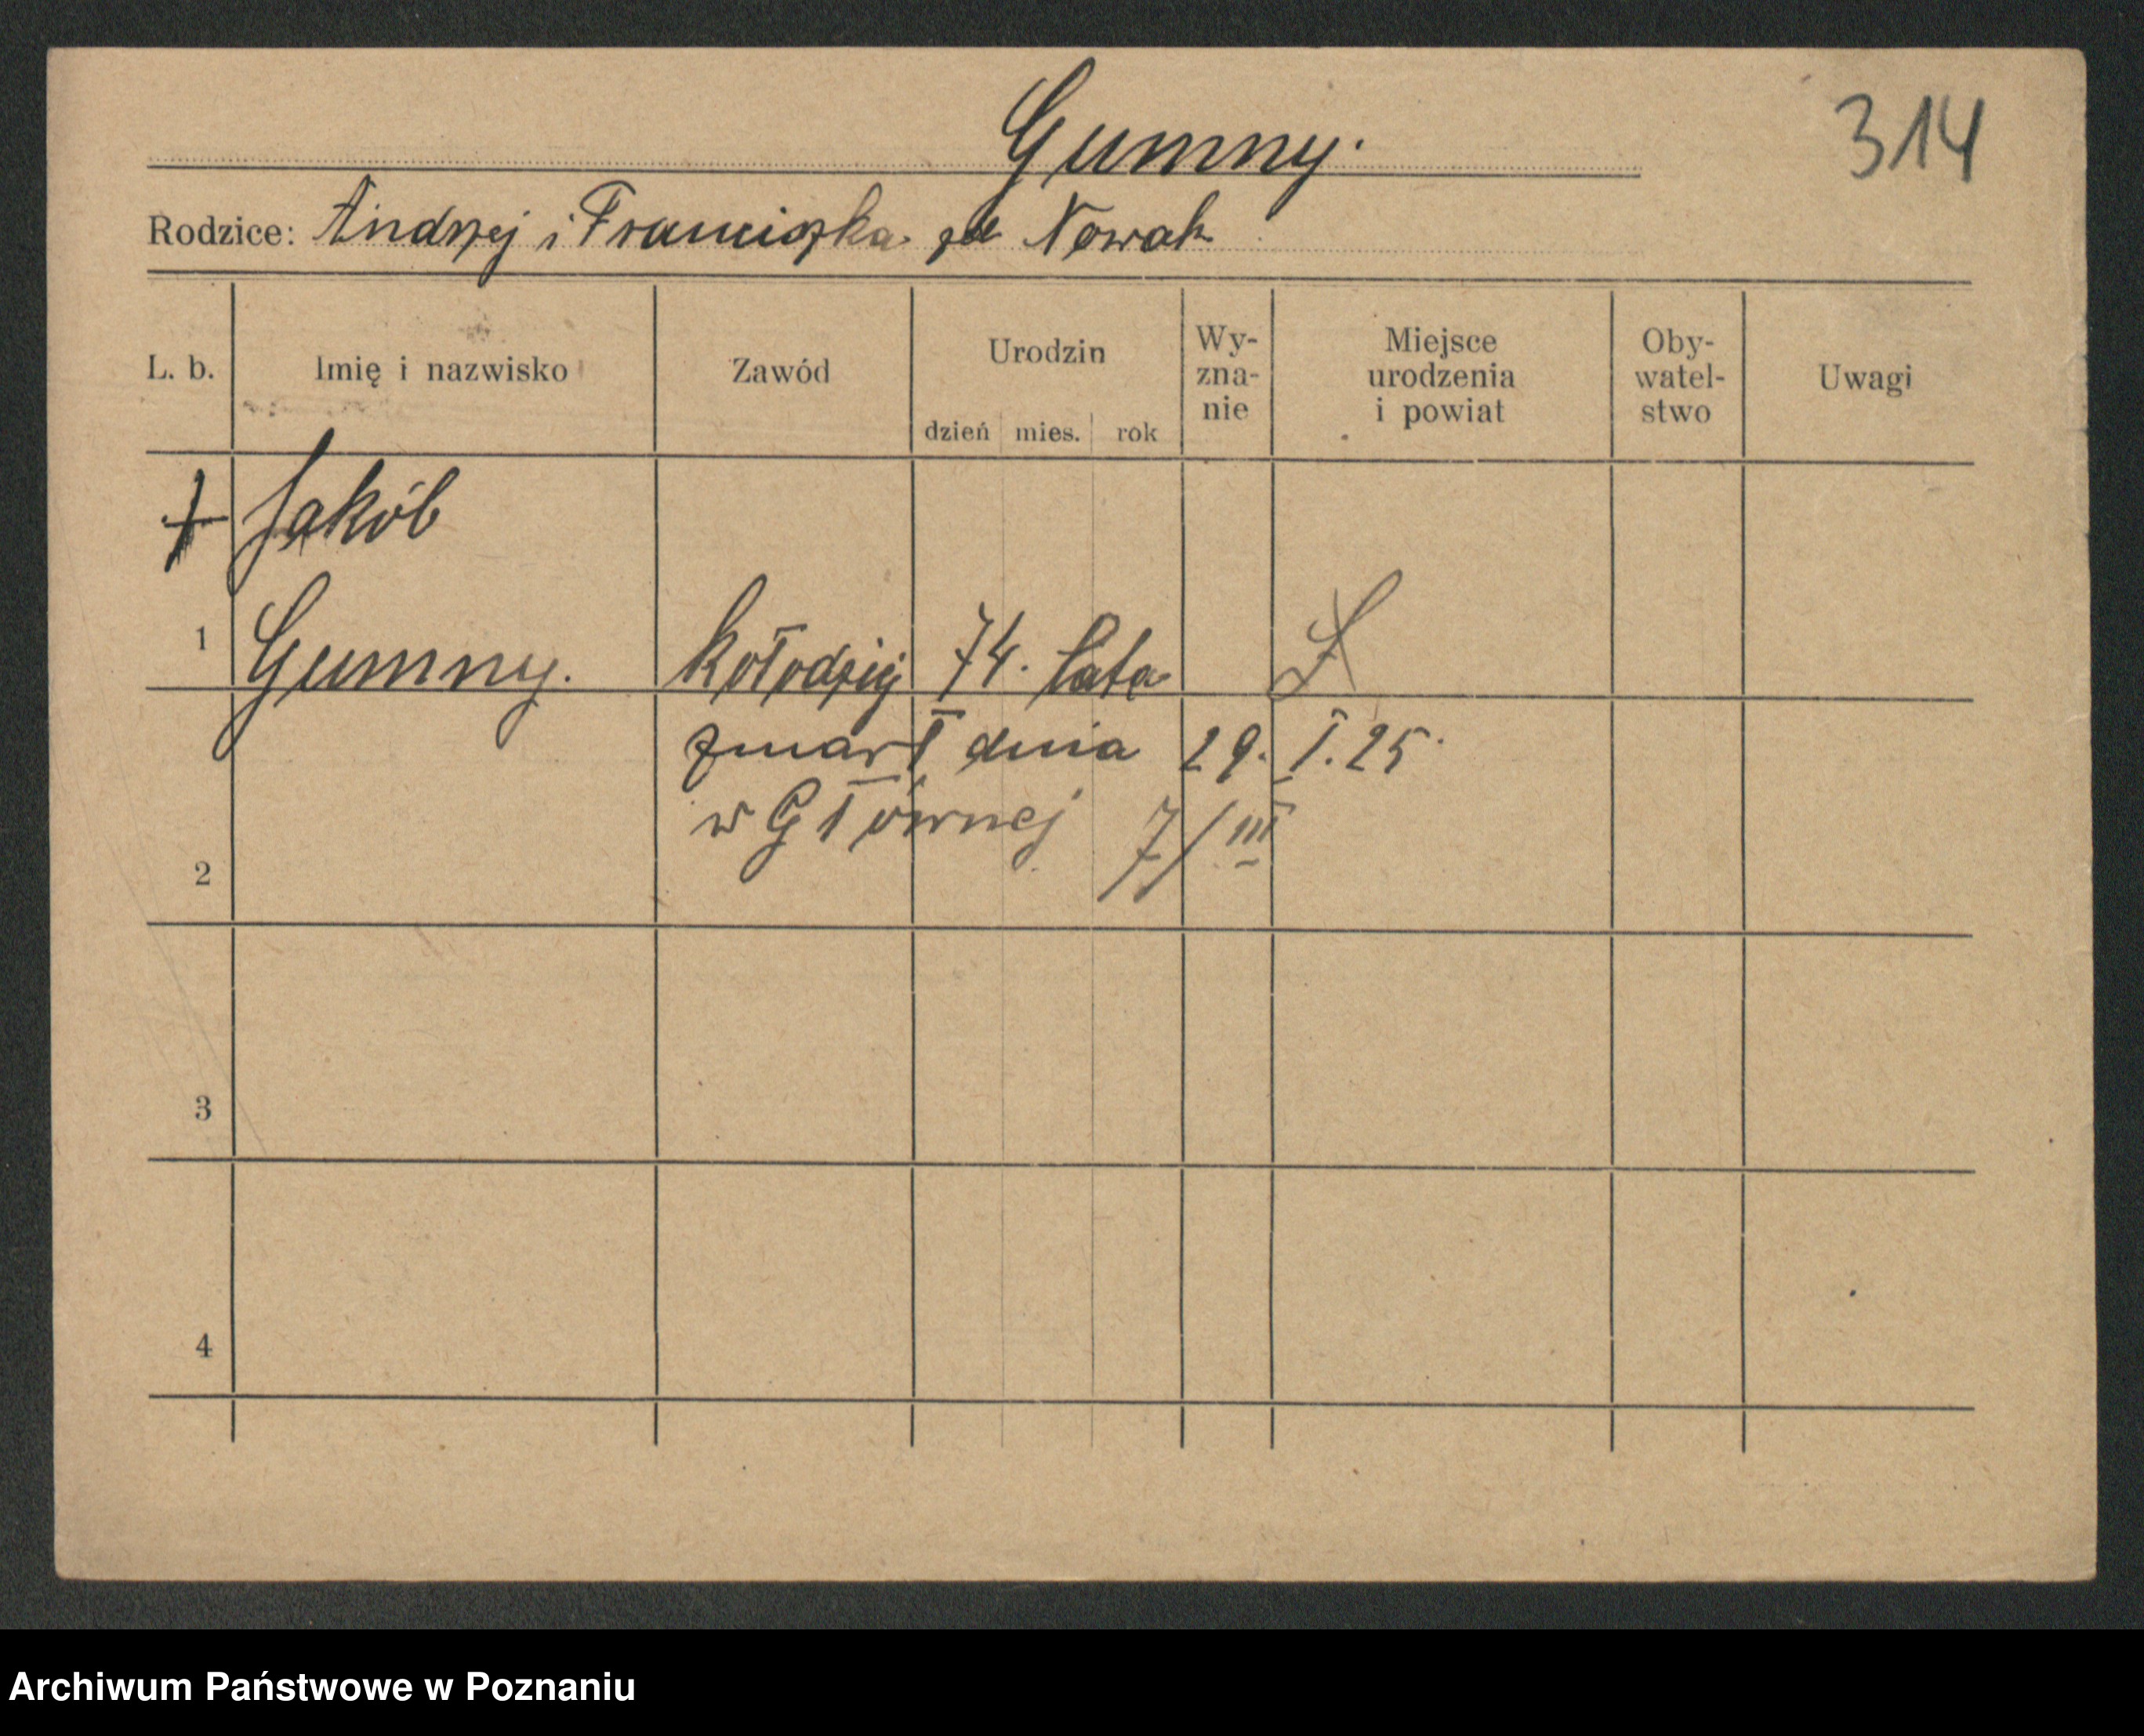 Gumny.
314
Rodzice: Andrzej i Franciszka zd Nowak
L. b.
Imię i nazwisko
Zawód
Urodzin
dzień mies. rok
Wy-
zna-
nie
Miejsce
urodzenia
i powiat
Oby-
watel-
stwo
Uwagi
+ Jakób
1 Gumny. kołodziej 74. lata
zmarł dnia 29. I. 25.
w Głównej 7/III
2
3
4
Archiwum Państwowe w Poznaniu